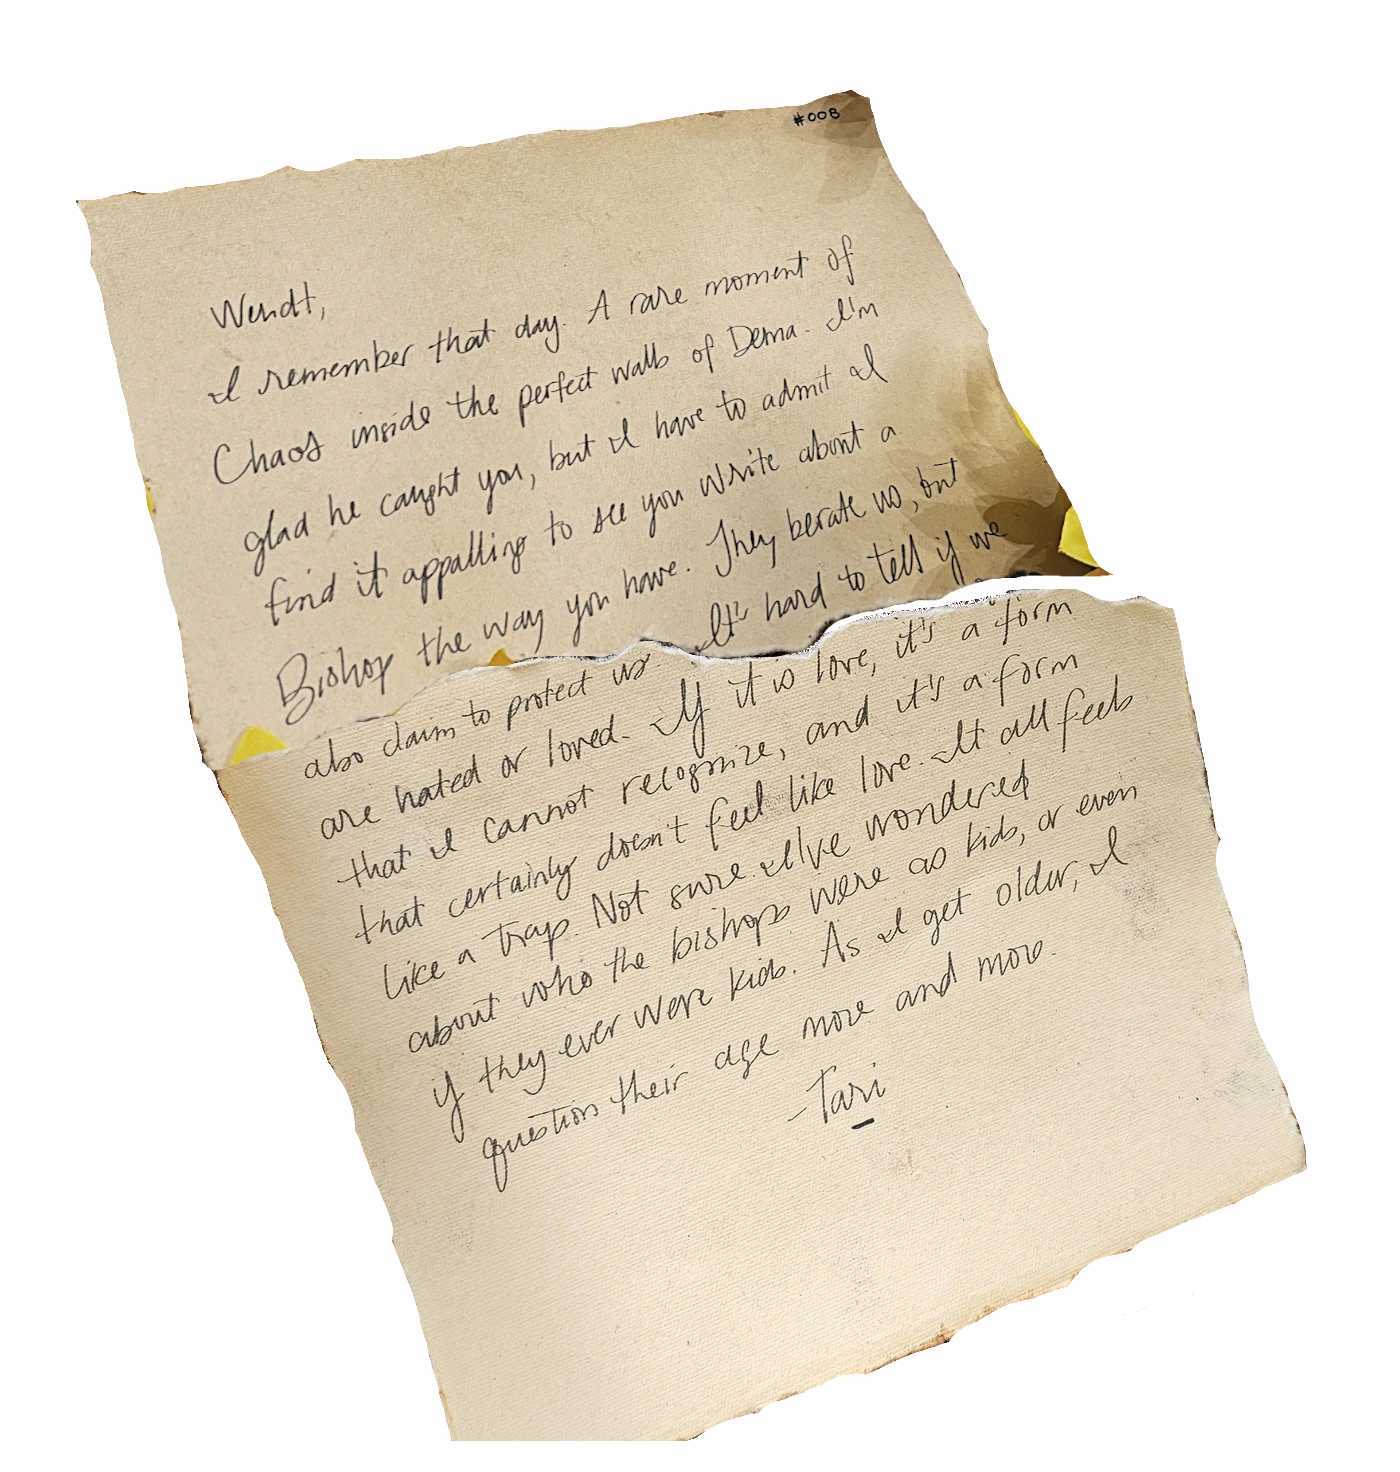 #008
Wendt,
I remember that day. A rare moment of
Chaos inside the perfect walls of Dema. I'm
glad he caught you, but I have to admit I
find it appalling to see you write about a
Bishop the way you have. They berate us, but
also claim to protect us. It's hard to tell if we
are hated or loved. If it is love, it's a form
that I cannot recognize, and it's a form
that certainly doesn't feel like love. It all feels
like a trap. Not sure I've wondered
about who the bishops were as kids, or even
if they ever were kids. As I get older, I
question their age more and more.
-Tari